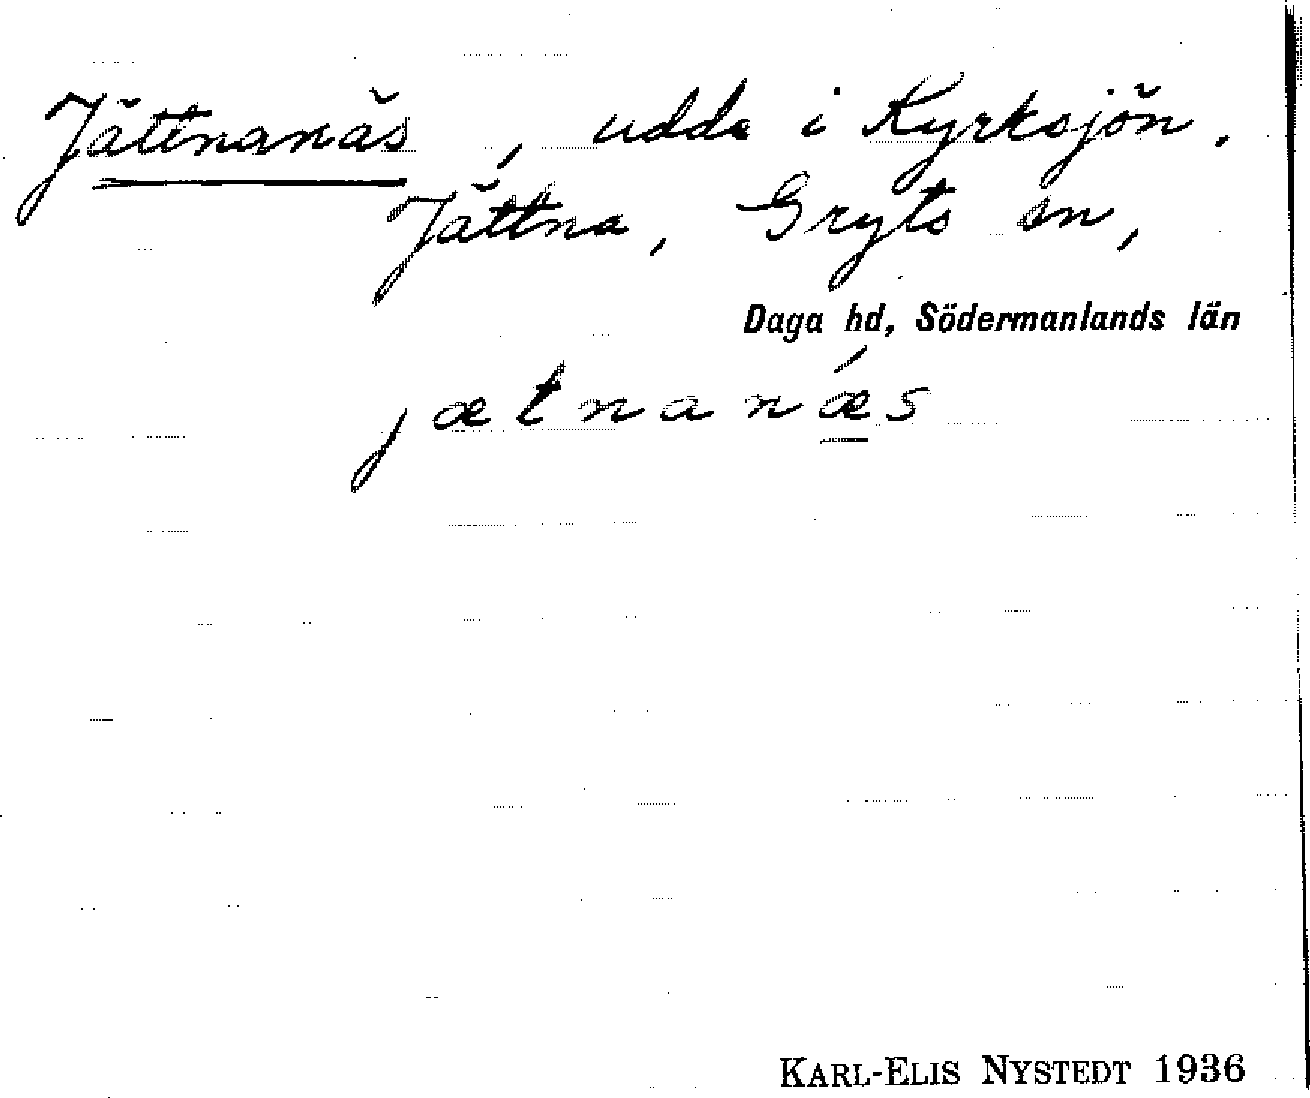 Jättnanäs, udde i Kyrksjön.
Jättna, Gryts sn,
Daga hd, Södermanlands län
jætnanǽs
KARL-ELIS NYSTEDT 1936